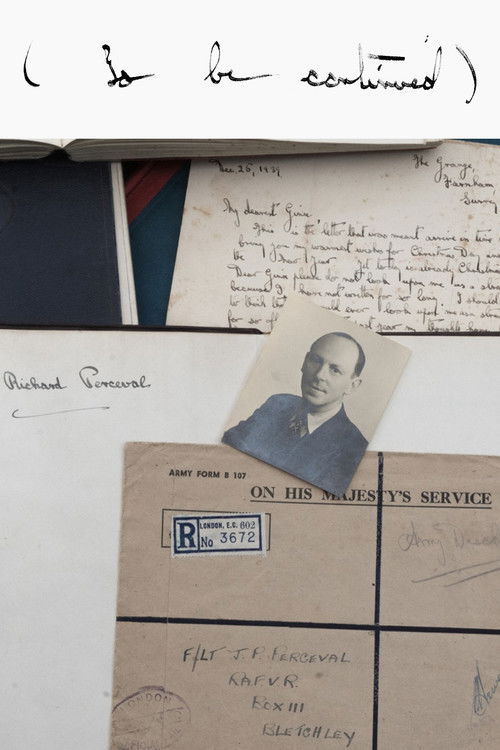 ( To be continued )
Dec. 25, 1939
The Grange,
Farnham,
Surrey
My dearest Ginie,
This is the letter that was meant arrive in time
bring you my warmest wishes for Christmas Day and
the New Year. Yet to day is already Christmas
Dear Ginie please do not look upon me as a
because I have not written for so long. I should
to think that could ever look upon me as a
for so
Richard Perceval
ARMY FORM B 107
ON HIS MAJESTY'S SERVICE
R LONDON, E.C. 602
No 3672
Army
F/LT J.P. PERCEVAL
R.A.F.V.R.
BOX III
BLETCHLEY
LONDON